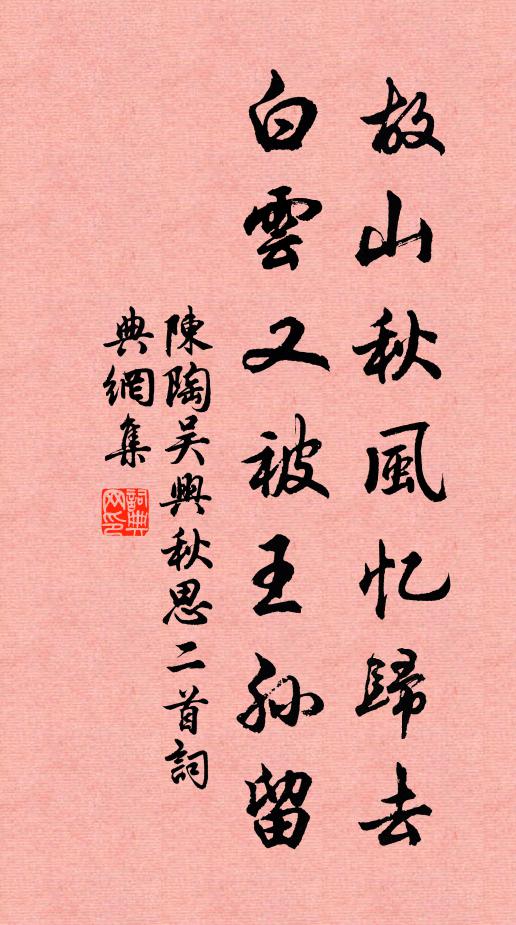 故山秋風忆歸去
白雲又被王孫留
陳陶吴興秋思二首詞
典網集
詞典网印